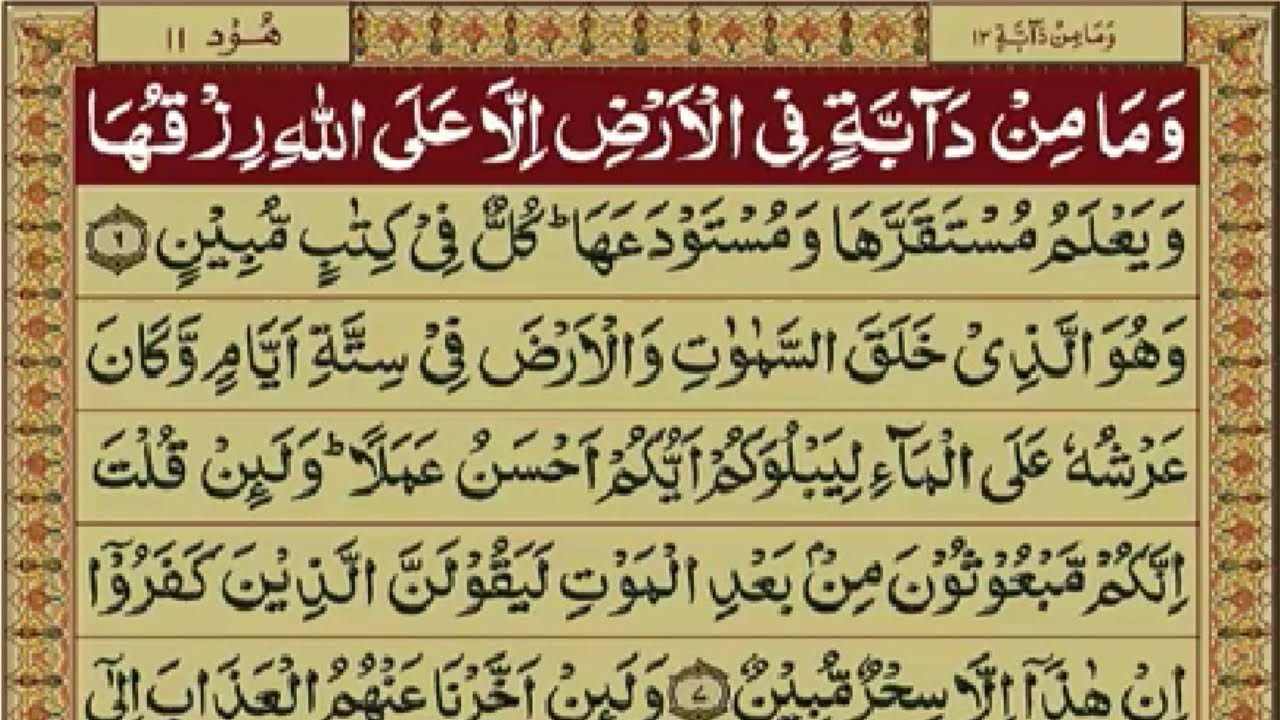 وَمَا مِنْ دَآبَّةٍ ١٢
هُوْد ١١
وَمَا مِنْ دَآبَّةٍ فِی الْاَرْضِ اِلَّا عَلَی اللّٰهِ رِزْقُهَا
وَیَعْلَمُ مُسْتَقَرَّهَا وَمُسْتَوْدَعَهَا ؕ كُلٌّ فِیْ كِتٰبٍ مُّبِیْنٍ ۝٦
وَهُوَ الَّذِیْ خَلَقَ السَّمٰوٰتِ وَالْاَرْضَ فِیْ سِتَّةِ اَیَّامٍ وَّكَانَ
عَرْشُهٗ عَلَی الْمَآءِ لِیَبْلُوَكُمْ اَیُّكُمْ اَحْسَنُ عَمَلًا ؕ وَلَىِٕنْ قُلْتَ
اِنَّكُمْ مَّبْعُوْثُوْنَ مِنْۢ بَعْدِ الْمَوْتِ لَیَقُوْلَنَّ الَّذِیْنَ كَفَرُوْۤا
اِنْ هٰذَاۤ اِلَّا سِحْرٌ مُّبِیْنٌ ۝٧ وَلَىِٕنْ اَخَّرْنَا عَنْهُمُ الْعَذَابَ اِلٰۤی